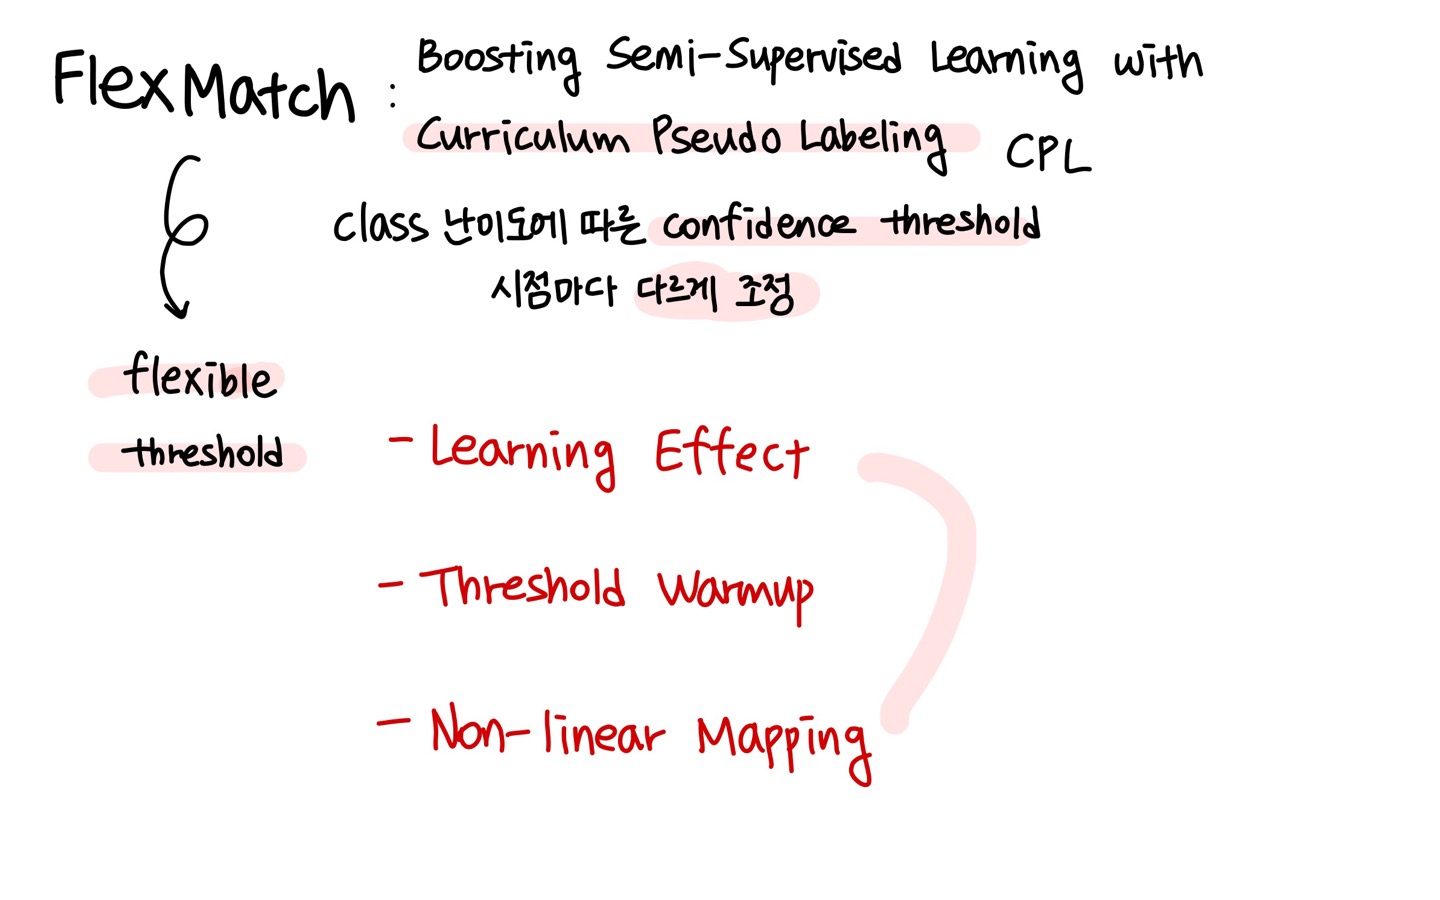 FlexMatch : Boosting Semi-Supervised Learning with
Curriculum Pseudo Labeling CPL
class 난이도에 따른 confidence threshold
시점마다 다르게 조정
flexible
threshold
- Learning Effect
- Threshold Warmup
- Non-linear Mapping